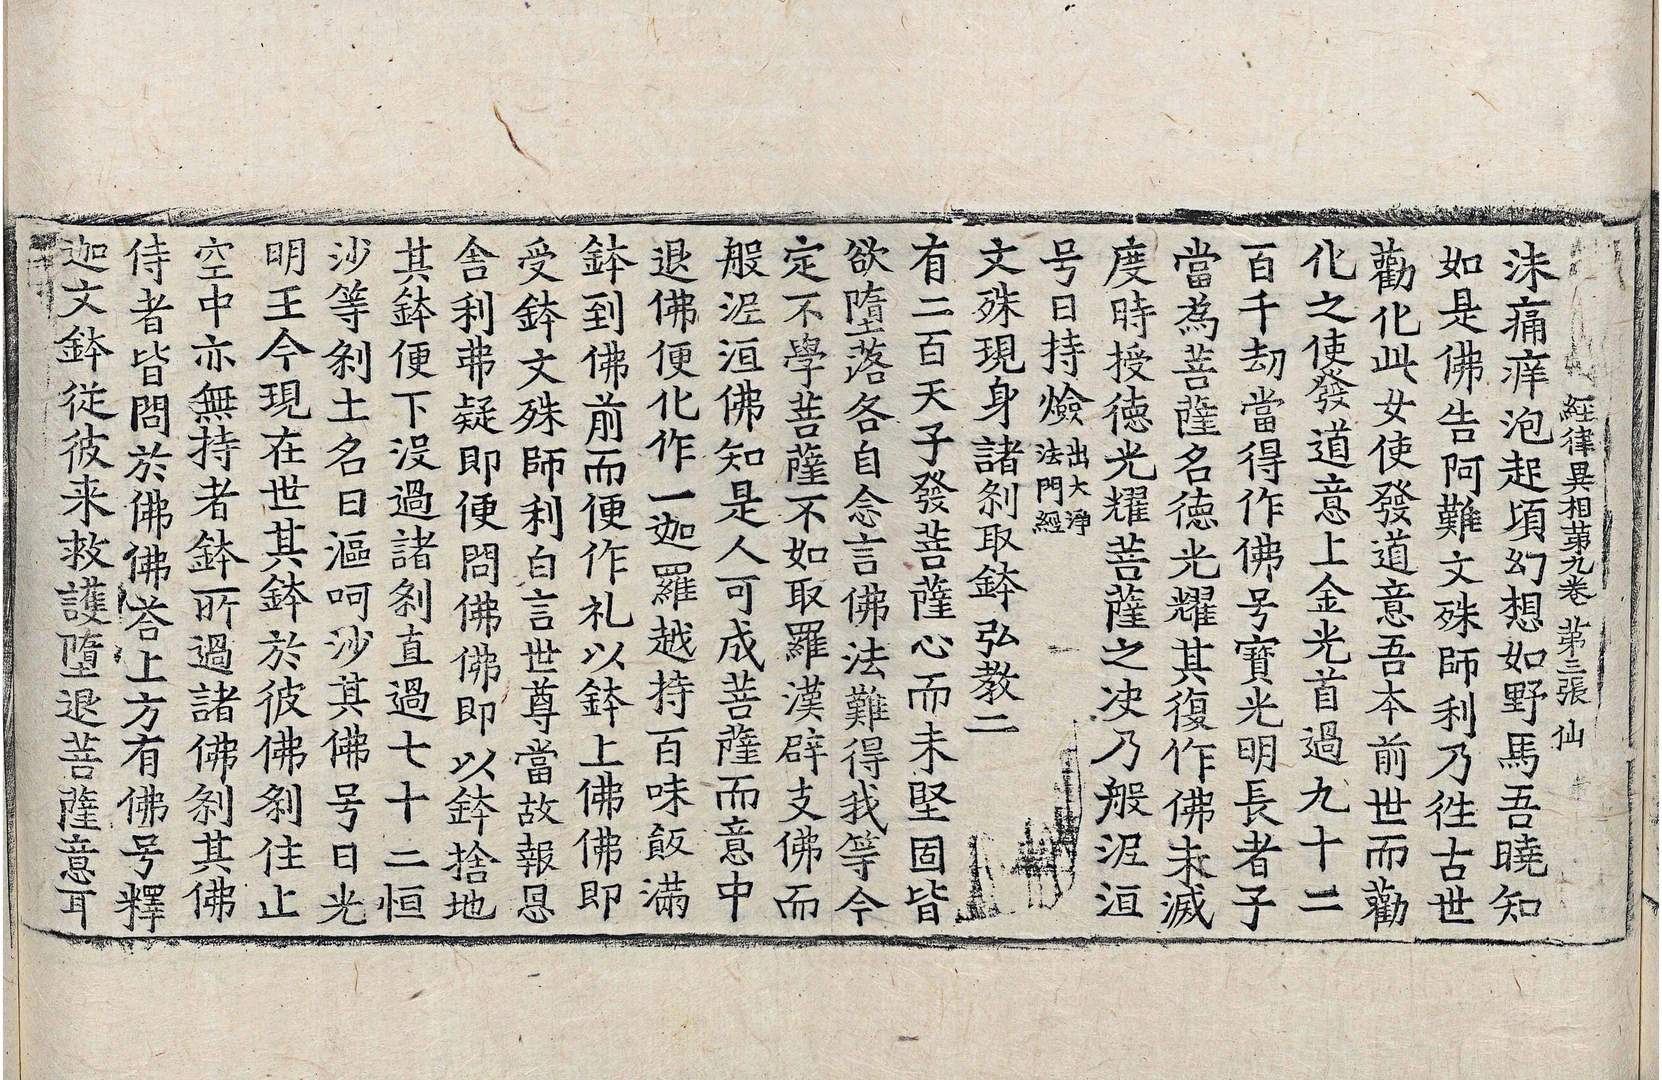 經律異相苐九卷 苐三張 仙
沫痛痒泡起頃幻想如野馬吾曉知
如是佛告阿難文殊師利乃徃古世
勸化此女使發道意吾本前世而勸
化之使發道意上金光首過九十二
百千劫當得作佛号寶光明長者子
當為菩薩名徳光耀其復作佛未滅
度時授徳光耀菩薩之决乃般泥洹
号曰持燄
出大浄
法門經
文殊現身諸刹取鉢弘教二
有二百天子發菩薩心而未堅固皆
欲墮落各自念言佛法難得我等今
定不學菩薩不如取羅漢辟支佛而
般泥洹佛知是人可成菩薩而意中
退佛便化作一迦羅越持百味飯滿
鉢到佛前而便作礼以鉢上佛佛即
受鉢文殊師利白言世尊當故報恩
舍利弗疑即便問佛佛即以鉢捨地
其鉢便下没過諸刹直過七十二恒
沙等刹土名曰漚呵沙其佛号曰光
明王今現在世其鉢於彼佛刹住止
空中亦無持者鉢所過諸佛刹其佛
侍者皆問於佛佛荅上方有佛号釋
迦文鉢従彼来救護墮退菩薩意耳